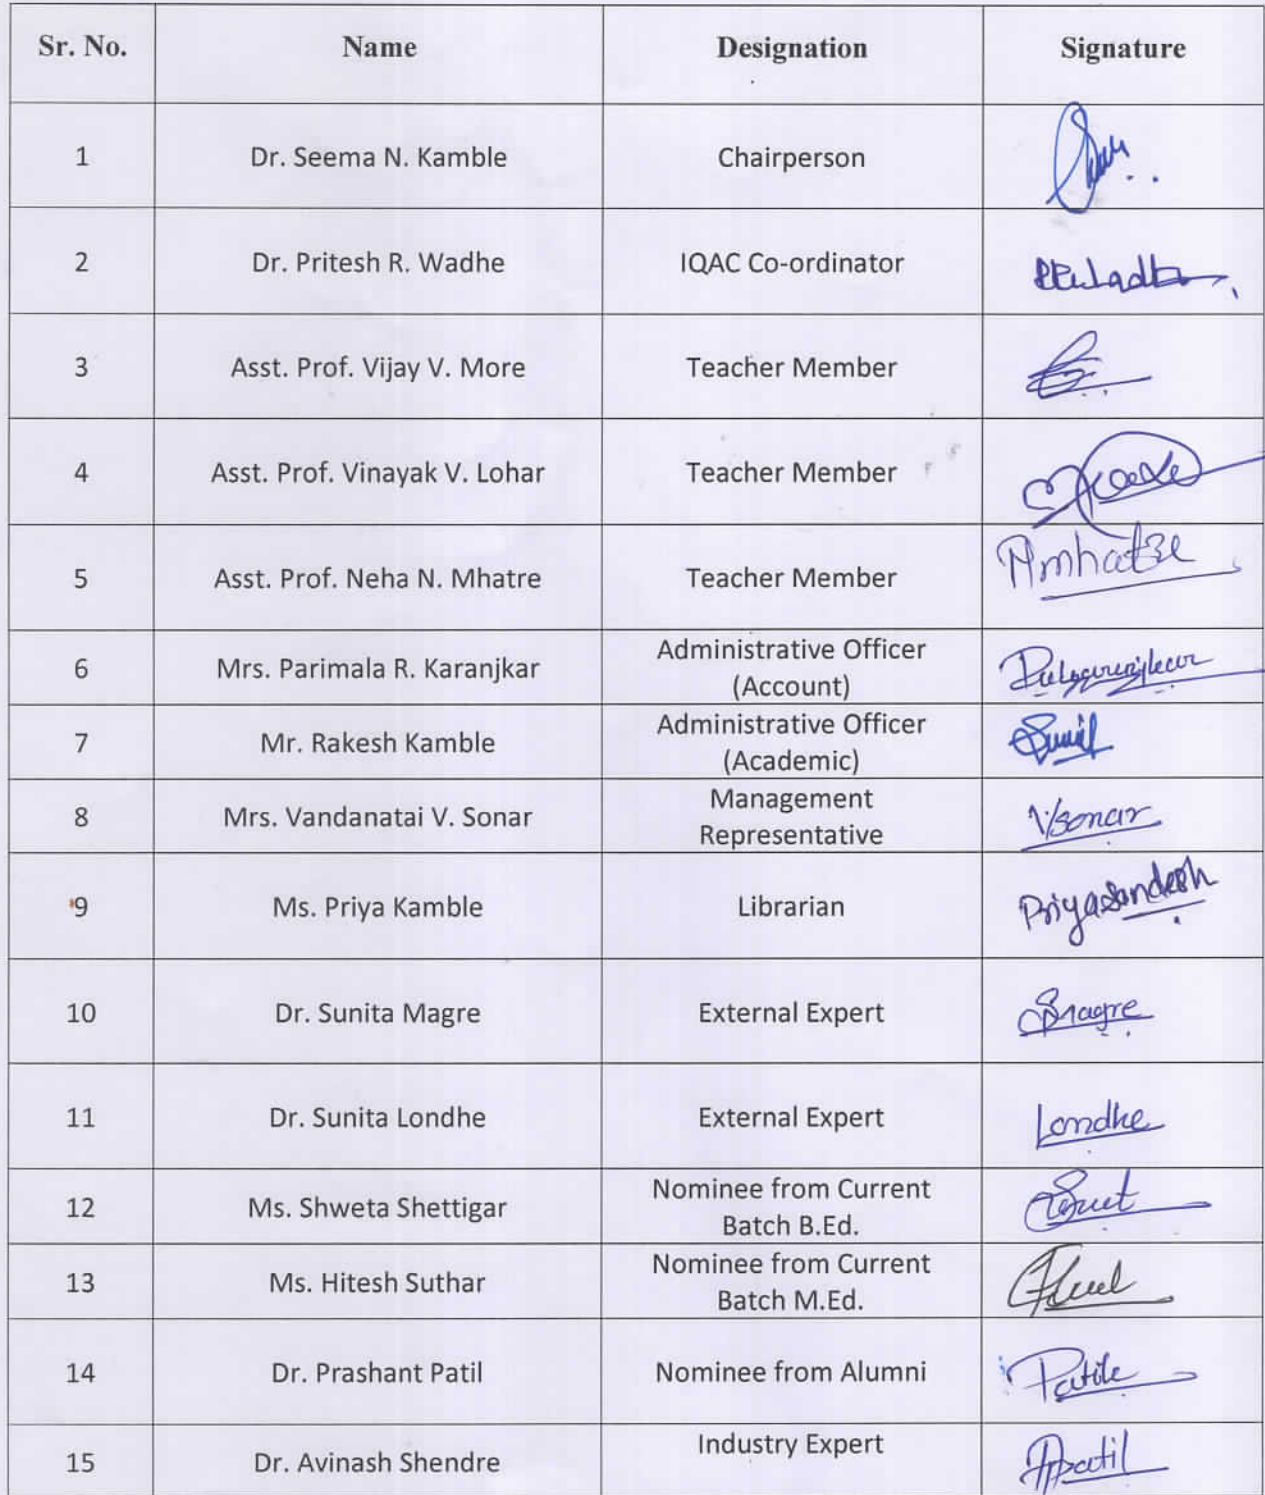 Sr. No. Name Designation Signature
1 Dr. Seema N. Kamble Chairperson
2 Dr. Pritesh R. Wadhe IQAC Co-ordinator
3 Asst. Prof. Vijay V. More Teacher Member
4 Asst. Prof. Vinayak V. Lohar Teacher Member
5 Asst. Prof. Neha N. Mhatre Teacher Member Nmhatre
6 Mrs. Parimala R. Karanjkar Administrative Officer
(Account)
7 Mr. Rakesh Kamble Administrative Officer
(Academic)
8 Mrs. Vandanatai V. Sonar Management
Representative Vsonar
9 Ms. Priya Kamble Librarian Priyasandesh
10 Dr. Sunita Magre External Expert Smagre
11 Dr. Sunita Londhe External Expert Londhe
12 Ms. Shweta Shettigar Nominee from Current
Batch B.Ed.
13 Ms. Hitesh Suthar Nominee from Current
Batch M.Ed.
14 Dr. Prashant Patil Nominee from Alumni
15 Dr. Avinash Shendre Industry Expert